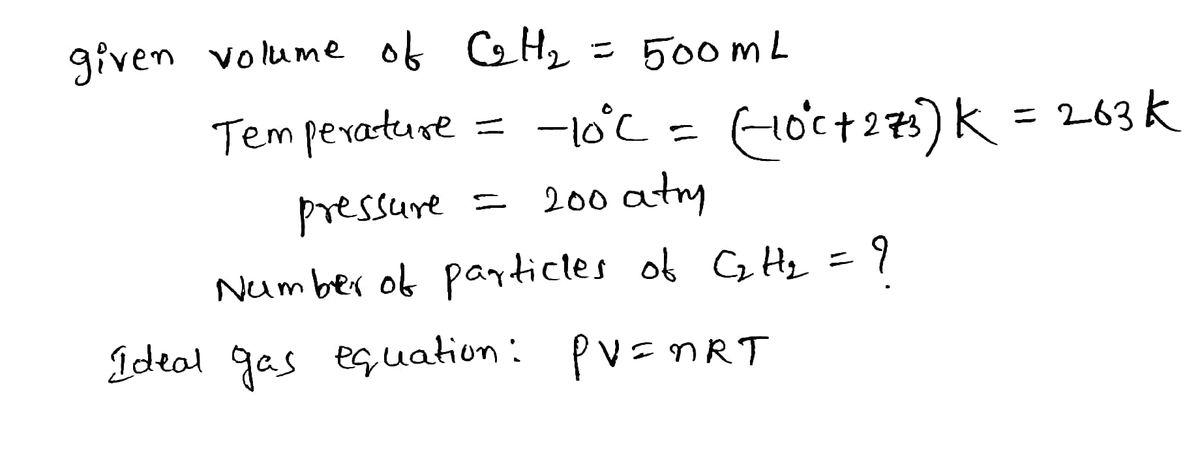 given volume of C₂H₂ = 500 mL
Temperature = -10°C = (-10°C+273) K = 263 K
pressure = 200 atm
Number of particles of C₂H₂ = ?
Ideal gas equation: PV = nRT